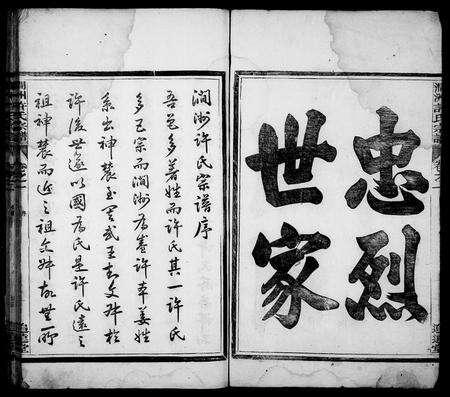 忠烈
世家
澗洲許氏宗譜序
吾邑多著姓而許氏其一許氏
多巨宗而澗洲為巷許本姜姓
系出神農至周武王封文叔於
許後世遂以國為氏是許氏遠之
祖神農而近之祖文叔故無所